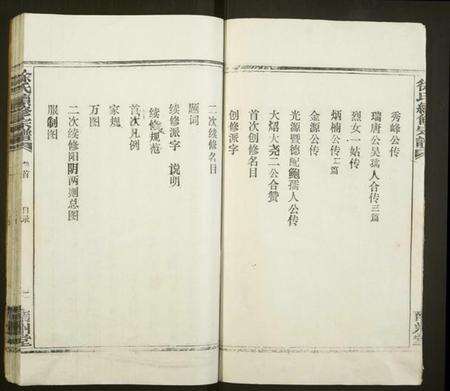 秀峰公传
瑞唐公吴孺人合传三篇
烈女一姑传
炳楠公传二篇
金源公传
光源暨德配鲍孺人公传
大炤大尧二公合赞
首次创修名目
创修派字
二次续修名目
题词
续修派字 说明
续修规范
首次凡例
家规
万图
二次续修阳阴两测总图
服制图
卷首 目录